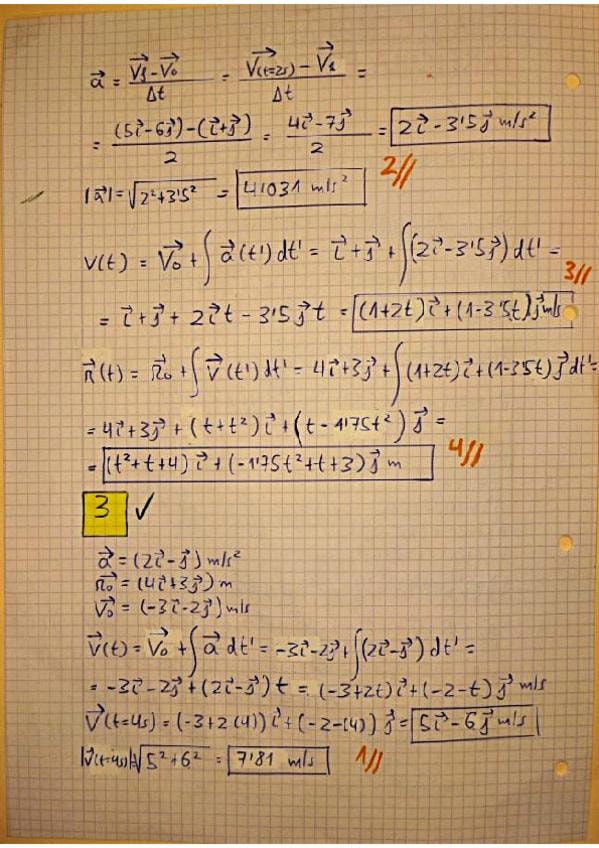 a⃗ = (V⃗₁ - V⃗₀)/Δt = (V⃗(t=2s) - V⃗₁)/Δt =
= ((5i⃗-6j⃗)-(i⃗+j⃗))/2 = (4i⃗-7j⃗)/2 = 2i⃗-3'5j⃗ m/s²
2//
|a⃗| = √(2²+3'5²) = 4'031 m/s²
V(t) = V⃗₀ + ∫ a⃗(t') dt' = i⃗+j⃗ + ∫(2i⃗-3'5j⃗) dt' =
3//
= i⃗+j⃗ + 2i⃗t - 3'5j⃗t = (1+2t)i⃗+(1-3'5t)j⃗ m/s
r⃗(t) = r⃗₀ + ∫ V⃗(t') dt' = 4i⃗+3j⃗ + ∫(1+2t)i⃗+(1-3'5t)j⃗ dt' =
= 4i⃗+3j⃗ + (t+t²)i⃗ + (t-1'75t²)j⃗ =
= (t²+t+4)i⃗ + (-1'75t²+t+3)j⃗ m
4//
3 ✓
a⃗ = (2i⃗-j⃗) m/s²
r⃗₀ = (4i⃗+3j⃗) m
V⃗₀ = (-3i⃗-2j⃗) m/s
V⃗(t) = V⃗₀ + ∫ a⃗ dt' = -3i⃗-2j⃗ + ∫(2i⃗-j⃗) dt' =
= -3i⃗-2j⃗+(2i⃗-j⃗)t = (-3+2t)i⃗+(-2-t)j⃗ m/s
V⃗(t=4s) = (-3+2(4))i⃗+(-2-(4))j⃗ = 5i⃗-6j⃗ m/s
|V⃗(t=4s)| = √(5²+6²) = 7'81 m/s
1//